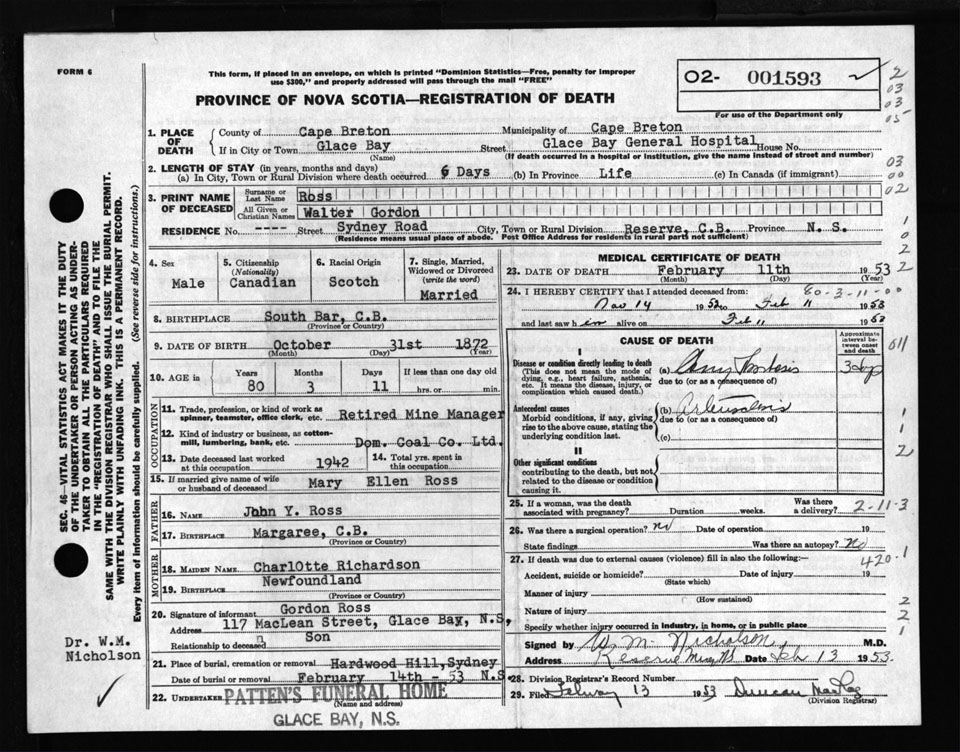 FORM 6
This form, if placed in an envelope, on which is printed "Dominion Statistics—Free, penalty for improper
use $300," and properly addressed will pass through the mail "FREE"
PROVINCE OF NOVA SCOTIA—REGISTRATION OF DEATH
O2- 001593
For use of the Department only
2
03
03
05
03
00
02
1
0
2
2
011
1
1
2
2-11-3
420-1
2
2
1
SEC. 46—VITAL STATISTICS ACT MAKES IT THE DUTY
OF THE UNDERTAKER OR PERSON ACTING AS UNDER-
TAKER TO OBTAIN ALL THE PARTICULARS REQUIRED
IN THE "REGISTRATION OF DEATH" AND TO FILE THE
SAME WITH THE DIVISION REGISTRAR WHO SHALL ISSUE THE BURIAL PERMIT.
WRITE PLAINLY WITH UNFADING INK. THIS IS A PERMANENT RECORD.
Every item of information should be carefully supplied. (See reverse side for instructions.)
1. PLACE OF DEATH
County of Cape Breton Municipality of Cape Breton
If in City or Town Glace Bay Street Glace Bay General Hospital House No.
(Name) (If death occurred in a hospital or institution, give the name instead of street and number)
2. LENGTH OF STAY (in years, months and days)
(a) In City, Town or Rural Division where death occurred 6 Days (b) In Province Life (c) In Canada (if immigrant)
3. PRINT NAME OF DECEASED
Surname or Last Name Ross
All Given or Christian Names Walter Gordon
RESIDENCE No. ---- Street Sydney Road City, Town or Rural Division Reserve, C.B. Province N. S.
(Residence means usual place of abode. Post Office Address for residents in rural parts not sufficient)
4. Sex
Male
5. Citizenship (Nationality)
Canadian
6. Racial Origin
Scotch
7. Single, Married, Widowed or Divorced (write the word)
Married
8. BIRTHPLACE South Bar, C.B.
(Province or Country)
9. DATE OF BIRTH October 31st 1872
(Month) (Day) (Year)
10. AGE in Years Months Days If less than one day old
80 3 11 hrs. or min.
OCCUPATION
11. Trade, profession, or kind of work as spinner, teamster, office clerk, etc. Retired Mine Manager
12. Kind of industry or business, as cotton-mill, lumbering, bank, etc. Dom. Coal Co. Ltd.
13. Date deceased last worked at this occupation 1942
14. Total yrs. spent in this occupation
15. If married give name of wife or husband of deceased Mary Ellen Ross
FATHER
16. NAME John Y. Ross
17. BIRTHPLACE Margaree, C.B.
(Province or Country)
MOTHER
18. MAIDEN NAME CharlOtte Richardson
19. BIRTHPLACE Newfoundland
(Province or Country)
20. Signature of informant Gordon Ross
Address 117 MacLean Street, Glace Bay, N.S,
Relationship to deceased Son
21. Place of burial, cremation or removal Hardwood Hill, Sydney
Date of burial or removal February 14th - 53 N.S
22. UNDERTAKER PATTEN'S FUNERAL HOME
(Name and address)
GLACE BAY, N.S.
Dr. W.M.
Nicholson
MEDICAL CERTIFICATE OF DEATH
23. DATE OF DEATH February 11th 1953
(Month) (Day)
24. I HEREBY CERTIFY that I attended deceased from: 80-3-11-00
Nov 14 1952 to Feb 11 1953
and last saw him alive on Feb 11 1953
CAUSE OF DEATH
Approximate interval between onset and death
I
Disease or condition directly leading to death
(This does not mean the mode of dying, e.g., heart failure, asthenia, etc. It means the disease, injury, or complication which caused death.)
(a) Thrombosis 3 days
due to (or as a consequence of)
Antecedent causes
Morbid conditions, if any, giving rise to the above cause, stating the underlying condition last.
(b)
due to (or as a consequence of)
(c)
II
Other significant conditions
contributing to the death, but not related to the disease or condition causing it.
25. If a woman, was the death associated with pregnancy? Duration weeks. Was there a delivery?
26. Was there a surgical operation? No Date of operation 19
State findings Was there an autopsy? No
27. If death was due to external causes (violence) fill in also the following:—
Accident, suicide or homicide? Date of injury 19
(State which)
Manner of injury
(How sustained)
Nature of injury
Specify whether injury occurred in industry, in home, or in public place
Signed by W. M. Nicholson M.D.
Address Reserve Mines NS Date Feb 13 1953.
28. Division Registrar's Record Number
29. Filed 13 1953 Duncan
(Division Registrar)